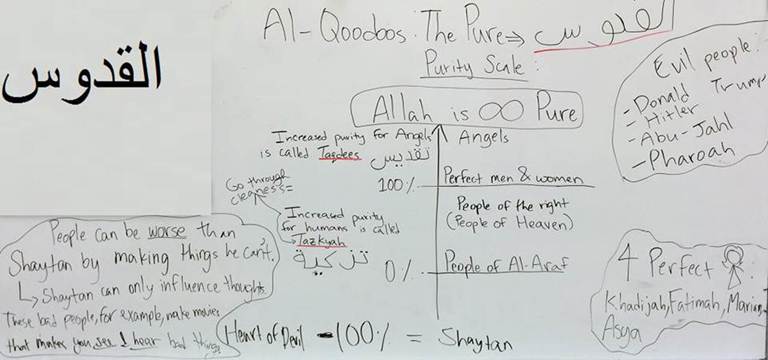 القدوس
Al-Qoodoos: The Pure → القدوس
Purity Scale:
Allah is ∞ Pure
Increased purity for Angels
is called Taqdees
تقديس
Angels
100% Perfect men & women
Go through
cleaness
Increased purity
for humans is called
Tazkyah
تزكية
People of the right
(People of Heaven)
0% People of Al-Araf
Heart of Devil -100% = Shaytan
People can be worse than
Shaytan by making things he can't.
↳ Shaytan can only influence thoughts
These bad people, for example, make movies
that makes you see & hear bad things
Evil people:
- Donald Trump
- Hitler
- Abu-Jahl
- Pharoah
4 Perfect
Khadijah, Fatimah, Mariam,
Asya